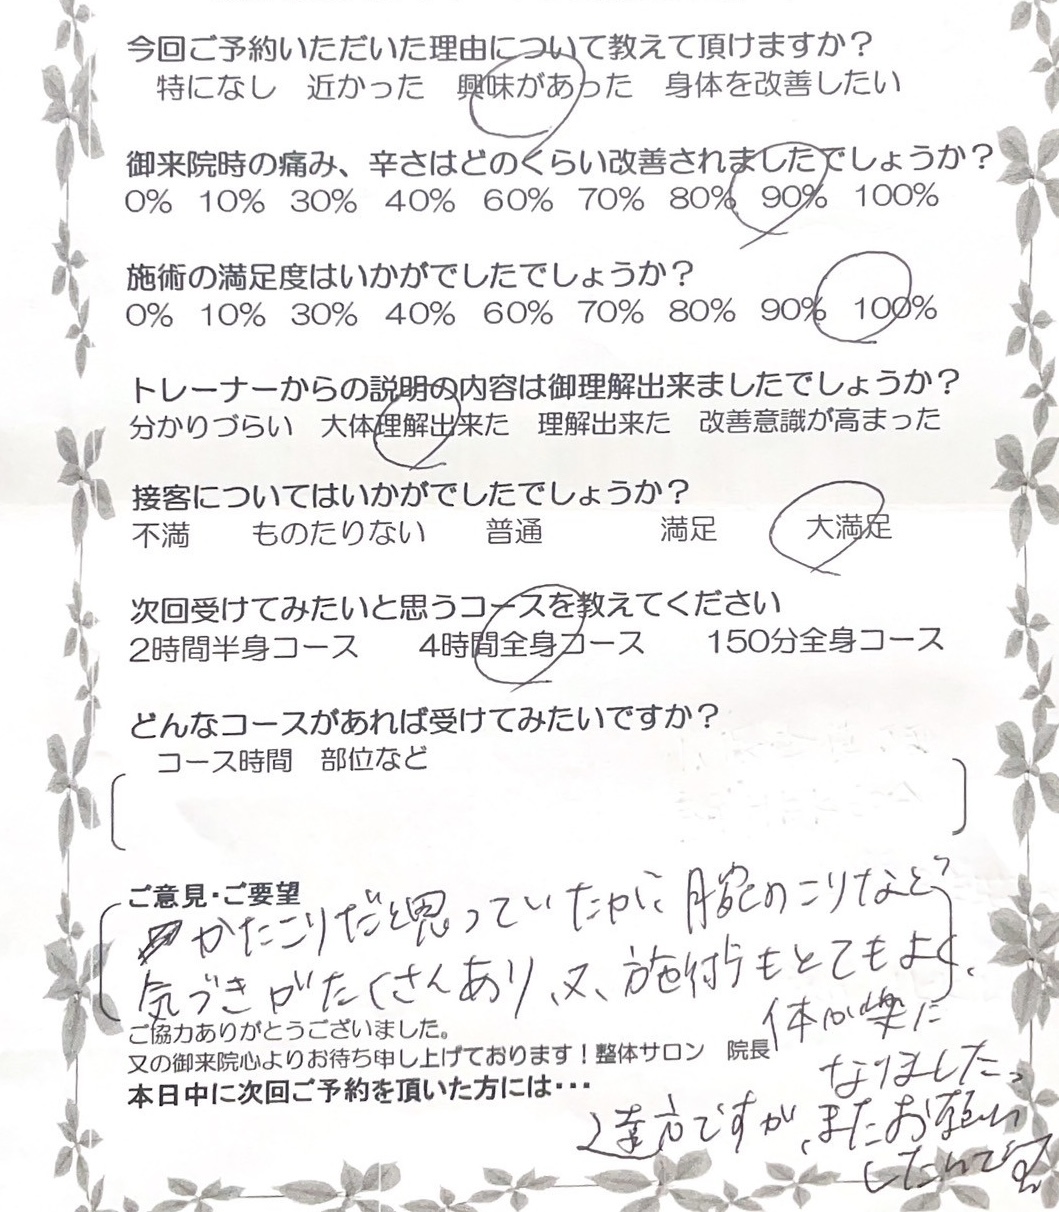 今回ご予約いただいた理由について教えて頂けますか？
特になし 近かった 興味があった 身体を改善したい
御来院時の痛み、辛さはどのくらい改善されましたでしょうか？
0% 10% 30% 40% 60% 70% 80% 90% 100%
施術の満足度はいかがでしたでしょうか？
0% 10% 30% 40% 60% 70% 80% 90% 100%
トレーナーからの説明の内容は御理解出来ましたでしょうか？
分かりづらい 大体理解出来た 理解出来た 改善意識が高まった
接客についてはいかがでしたでしょうか？
不満 ものたりない 普通 満足 大満足
次回受けてみたいと思うコースを教えてください
2時間半身コース 4時間全身コース 150分全身コース
どんなコースがあれば受けてみたいですか？
コース時間 部位など
ご意見・ご要望
かたこりだと思っていたのに 腕のこりなど
気づきがたくさんあり、又、施術もとてもよく、
体が楽に
なりました。
遠方ですが、またお願い
したいです
ご協力ありがとうございました。
又の御来院心よりお待ち申し上げております！整体サロン 院長
本日中に次回ご予約を頂いた方には・・・